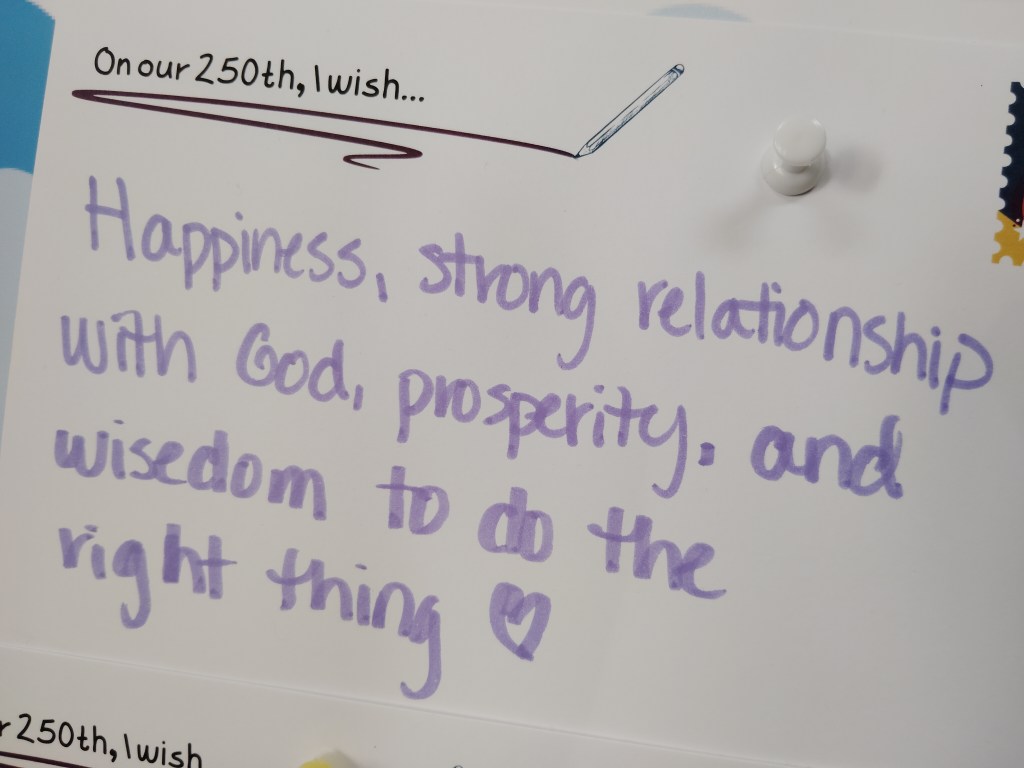 On our 250th, I wish...
Happiness, strong relationship
with God, prosperity, and
wisedom to do the
right thing ♡
250th, I wish